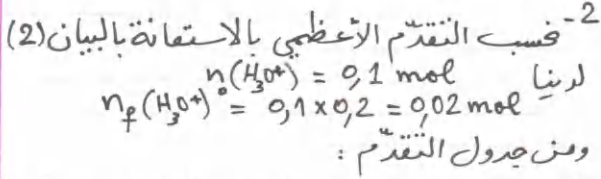 2- نحسب التقدّم الأعظمي بالاستعانة بالبيان (2)
لدينا n(H₃O⁺)₀ = 0,1 mol
n_f(H₃O⁺) = 0,1 x 0,2 = 0,02 mol
ومن جدول التقدّم :